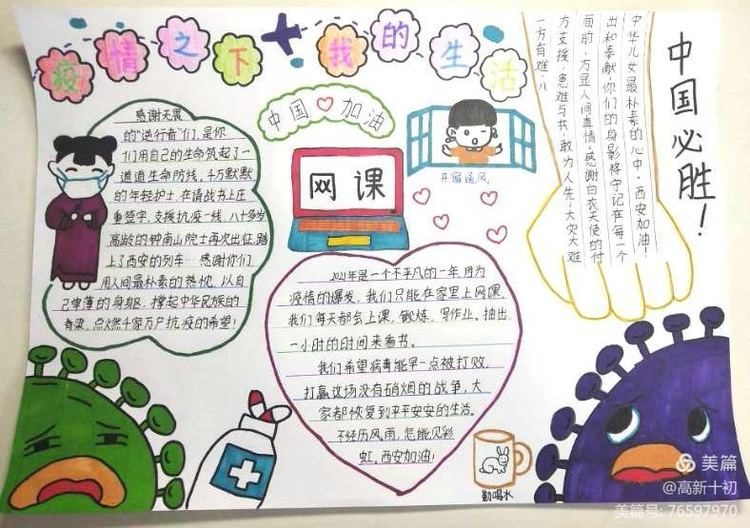 疫情之下 我的生活
中国必胜!
中国 加油
感谢无畏
的“逆行者”们,是你
们用自己的生命筑起了一
道道生命防线。千万默默
的年轻护士,在请战书上庄
重签字,支援抗疫一线,八十多岁
高龄的钟南山院士再次出征,踏
上了西安的列车…感谢你们,
用人间最朴素的热忱,以自
己单薄的身躯,撑起中华民族的
脊梁,点燃千家万户抗疫的希望!
网课
开窗通风
一方有难,八
方支援,患难与共,敢为人先!大灾大难
面前,方显人间真情,感谢白衣天使的付
出和奉献,你们的身影将牢记在每一个
中华儿女最朴素的心中,西安加油!
2021年是一个不平凡的一年,因为
疫情的爆发,我们只能在家里上网课,
我们每天都会上课,锻炼,写作业。抽出
一小时的时间来看书。
我们希望病毒能早一点被打败,
打赢这场没有硝烟的战争,大
家都恢复到平平安安的生活。
不经历风雨,怎能见彩
虹。西安加油!
勤喝水
美篇
@高新十初
美篇号: 76597970